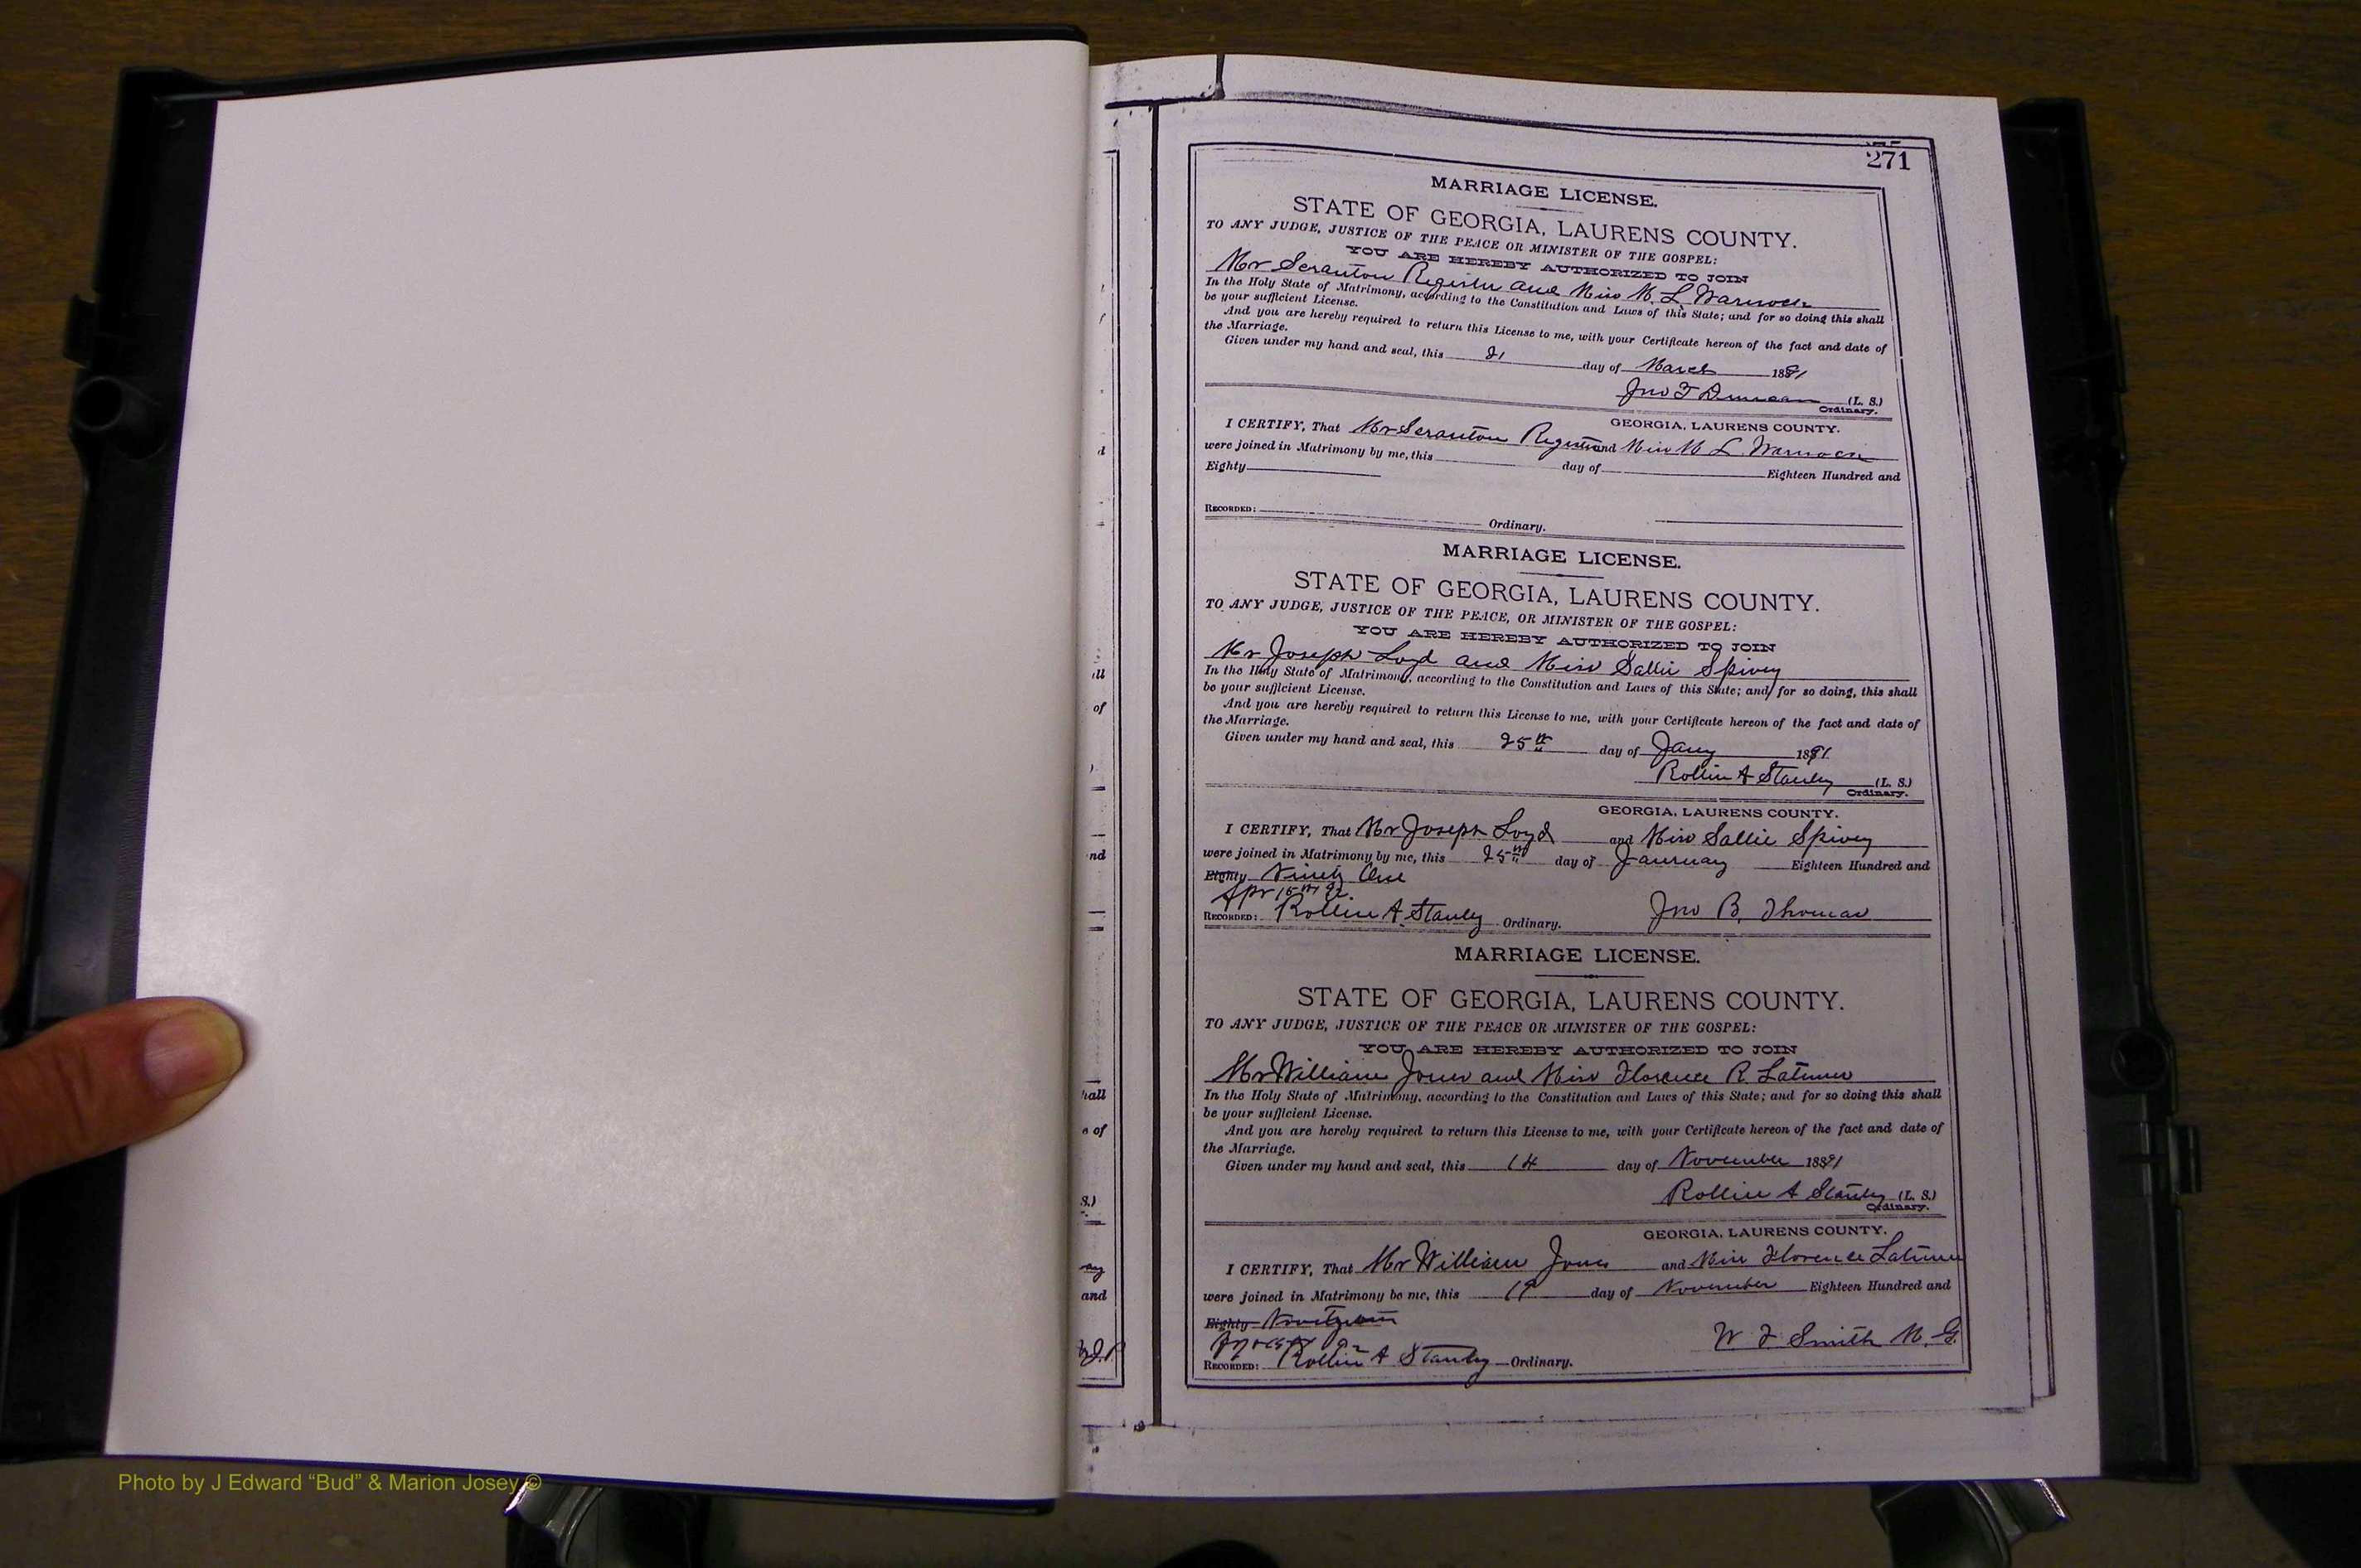 271
MARRIAGE LICENSE.
STATE OF GEORGIA, LAURENS COUNTY.
TO ANY JUDGE, JUSTICE OF THE PEACE OR MINISTER OF THE GOSPEL:
YOU ARE HEREBY AUTHORIZED TO JOIN
Mr Scranton Register and Miss M. L. Warnock
In the Holy State of Matrimony, according to the Constitution and Laws of this State; and for so doing this shall
be your sufficient License.
And you are hereby required to return this License to me, with your Certificate hereon of the fact and date of
the Marriage.
Given under my hand and seal, this 21 day of March 1891
Jno T Duncan (L. S.)
Ordinary.
GEORGIA, LAURENS COUNTY.
I CERTIFY, That Mr Scranton Register and Miss M L. Warnock
were joined in Matrimony by me, this day of Eighteen Hundred and
Eighty
RECORDED: Ordinary.
MARRIAGE LICENSE.
STATE OF GEORGIA, LAURENS COUNTY.
TO ANY JUDGE, JUSTICE OF THE PEACE, OR MINISTER OF THE GOSPEL:
YOU ARE HEREBY AUTHORIZED TO JOIN
Mr Joseph Loyd and Miss Sallie Spivey
In the Holy State of Matrimony, according to the Constitution and Laws of this State; and for so doing, this shall
be your sufficient License.
And you are hereby required to return this License to me, with your Certificate hereon of the fact and date of
the Marriage.
Given under my hand and seal, this 25th day of Jany 1891
Rollin A Stanley (L. S.)
Ordinary.
GEORGIA, LAURENS COUNTY.
I CERTIFY, That Mr Joseph Loyd and Miss Sallie Spivey
were joined in Matrimony by me, this 25th day of January Eighteen Hundred and
Eighty Ninety One
Apr 15th 92
RECORDED: Rollin A Stanley Ordinary. Jno B. Thomas
MARRIAGE LICENSE.
STATE OF GEORGIA, LAURENS COUNTY.
TO ANY JUDGE, JUSTICE OF THE PEACE OR MINISTER OF THE GOSPEL:
YOU ARE HEREBY AUTHORIZED TO JOIN
Mr William Jones and Miss Florence R. Latimer
In the Holy State of Matrimony, according to the Constitution and Laws of this State; and for so doing this shall
be your sufficient License.
And you are hereby required to return this License to me, with your Certificate hereon of the fact and date of
the Marriage.
Given under my hand and seal, this 14 day of November 1891
Rollin A Stanley (L. S.)
Ordinary.
GEORGIA, LAURENS COUNTY.
I CERTIFY, That Mr William Jones and Miss Florence Latimer
were joined in Matrimony be me, this 19 day of November Eighteen Hundred and
Eighty
RECORDED: Rollin A Stanley Ordinary. W F Smith M. G.
Photo by J Edward “Bud” & Marion Josey ©